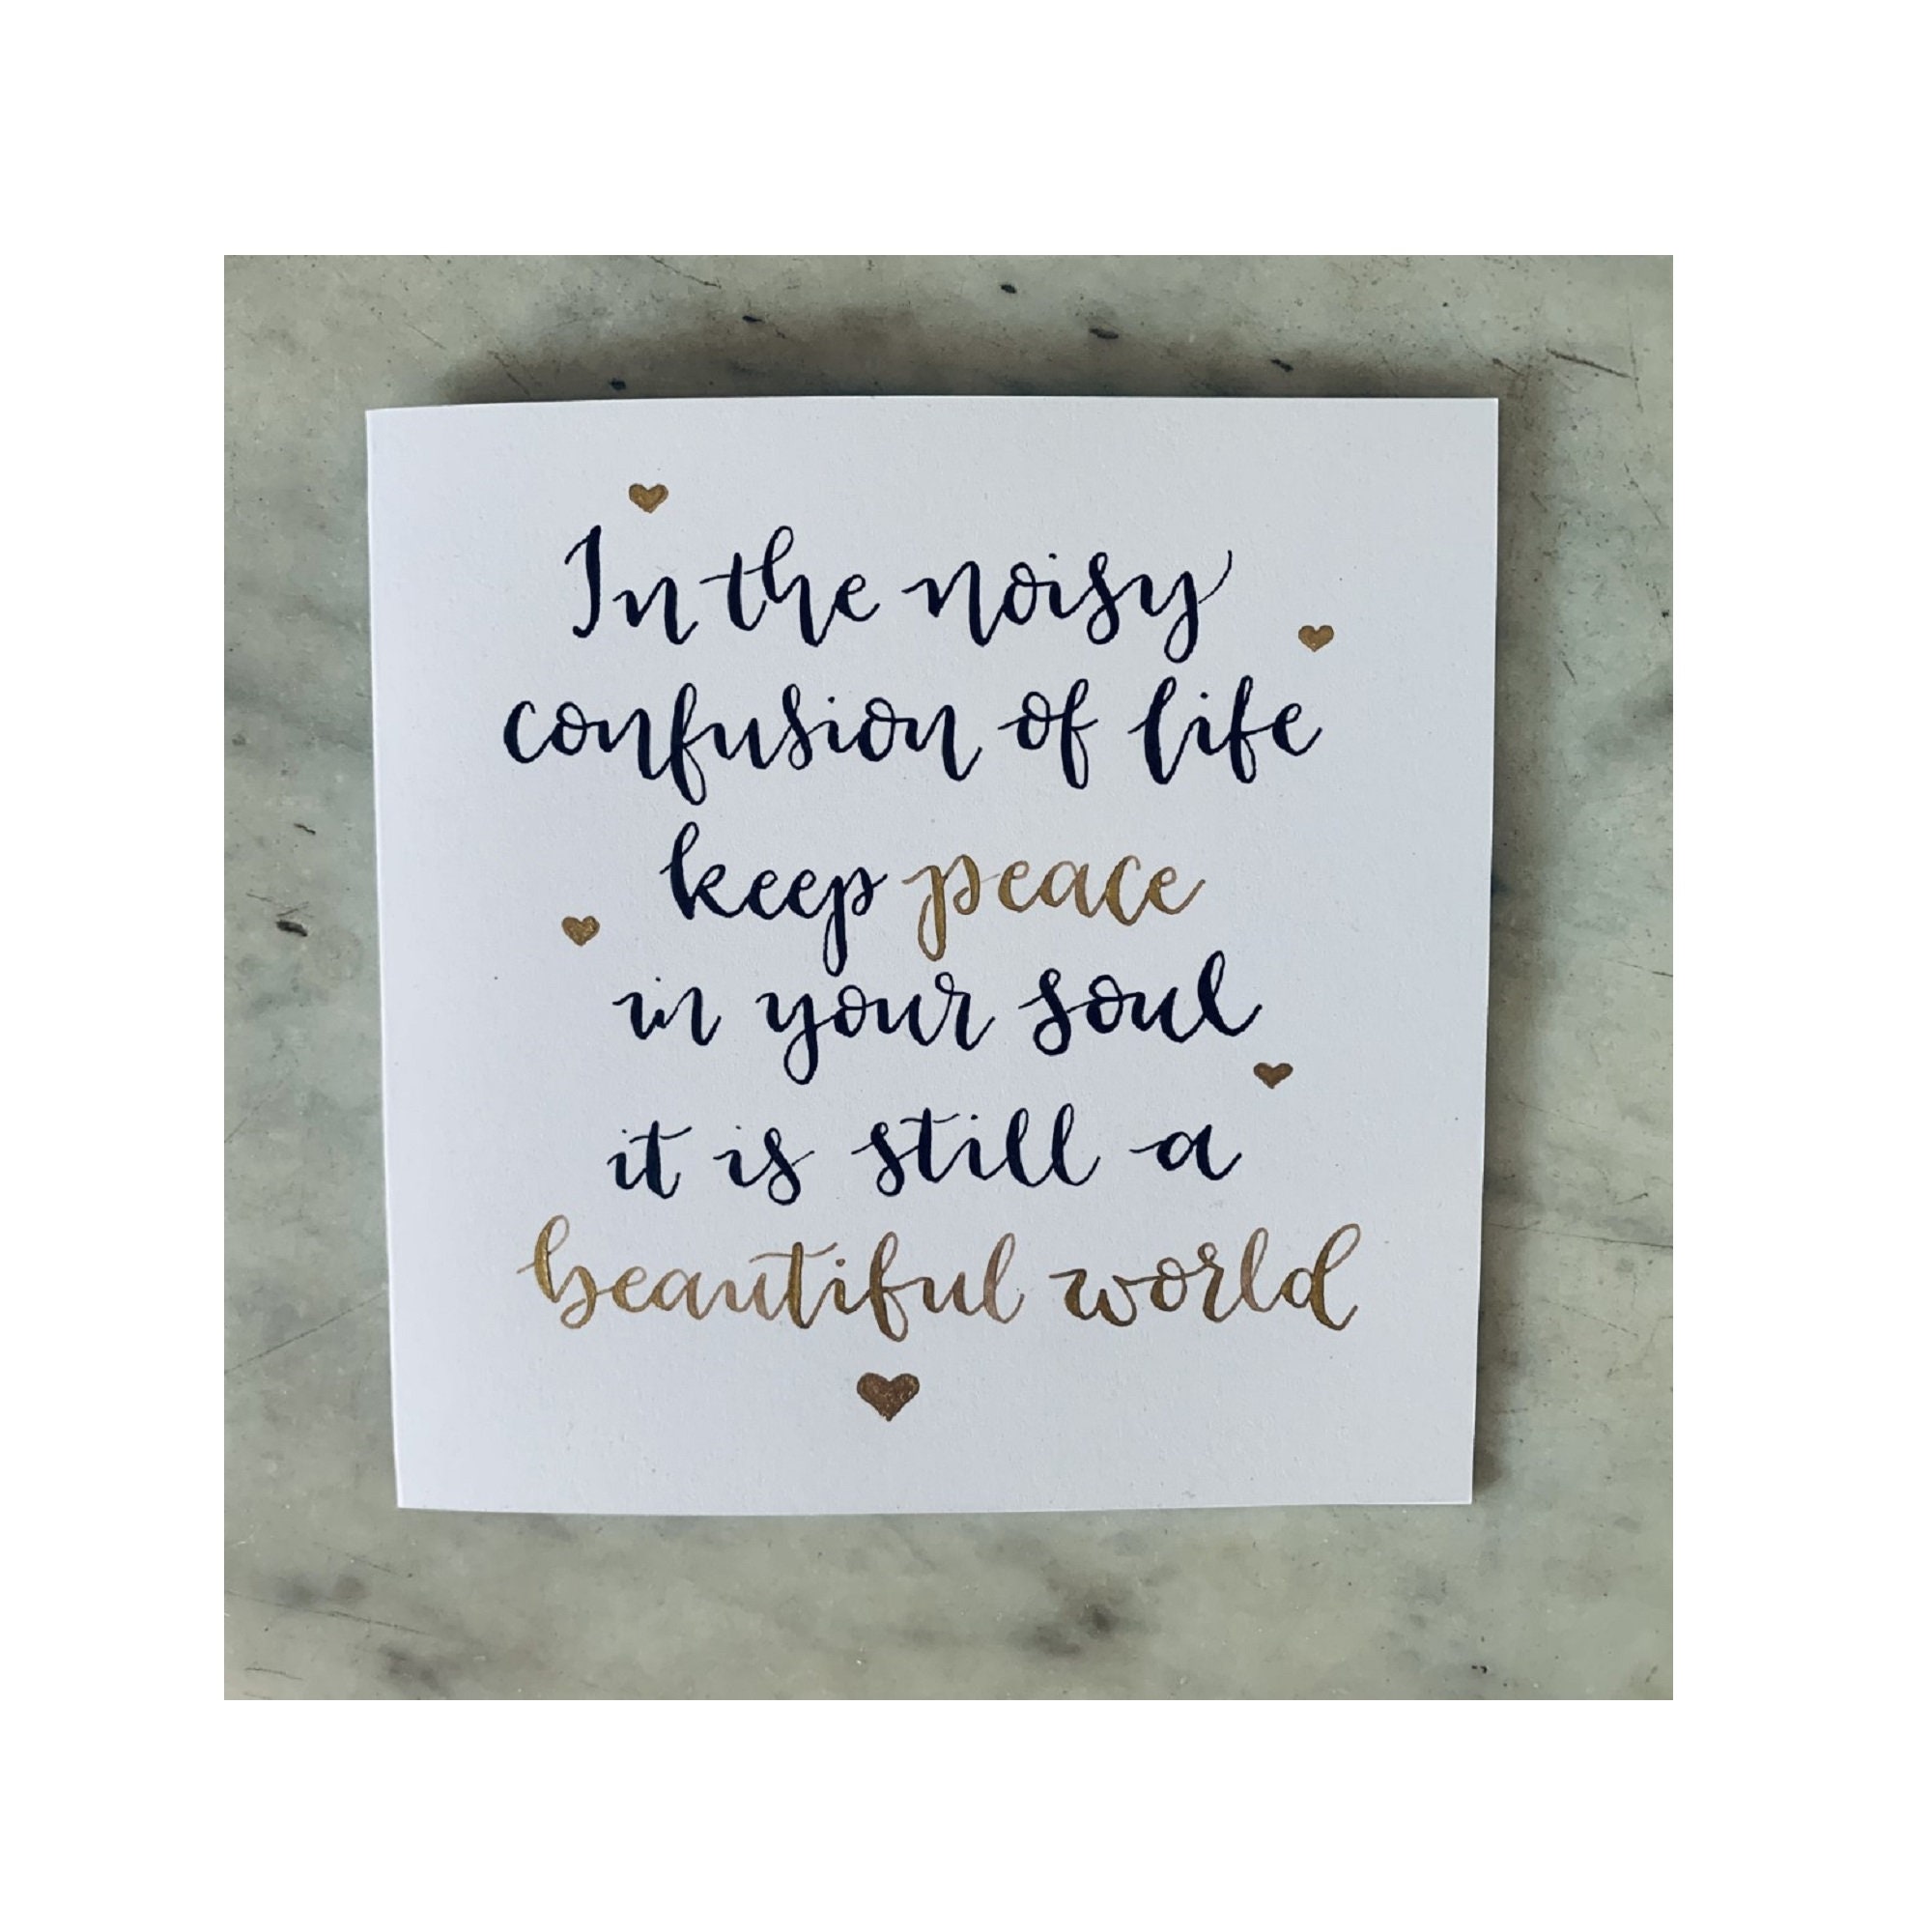 In the noisy
confusion of life
keep peace
in your soul
it is still a
beautiful world